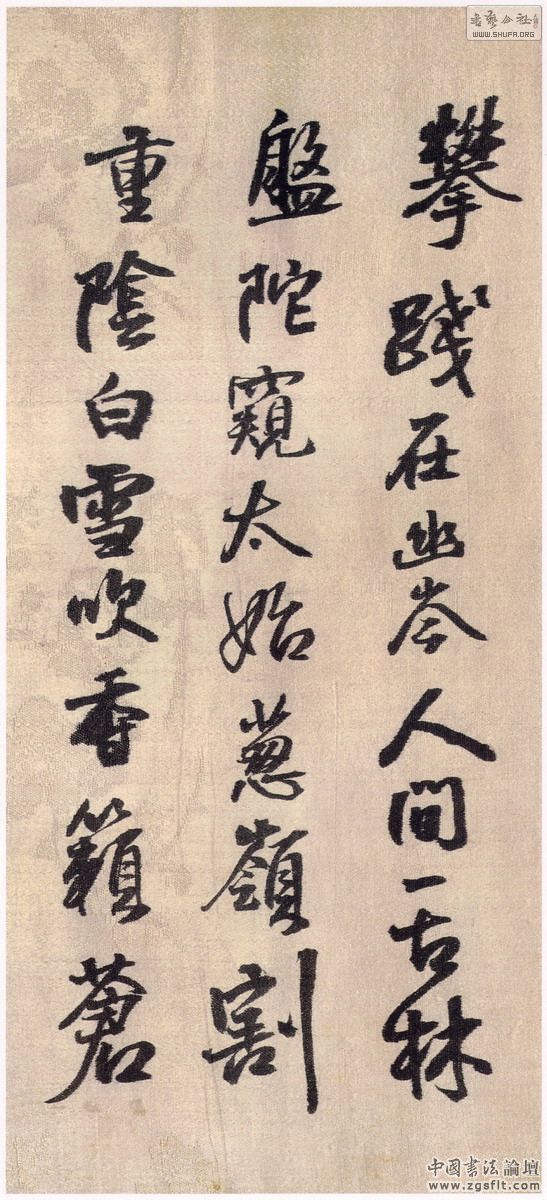 攀踐在幽岑人間一古林
盤陀窺太始葱嶺割
重陰白雪吹香籟蒼
WWW.SHUFA.ORG
中國書法論壇
www.zgsflt.com